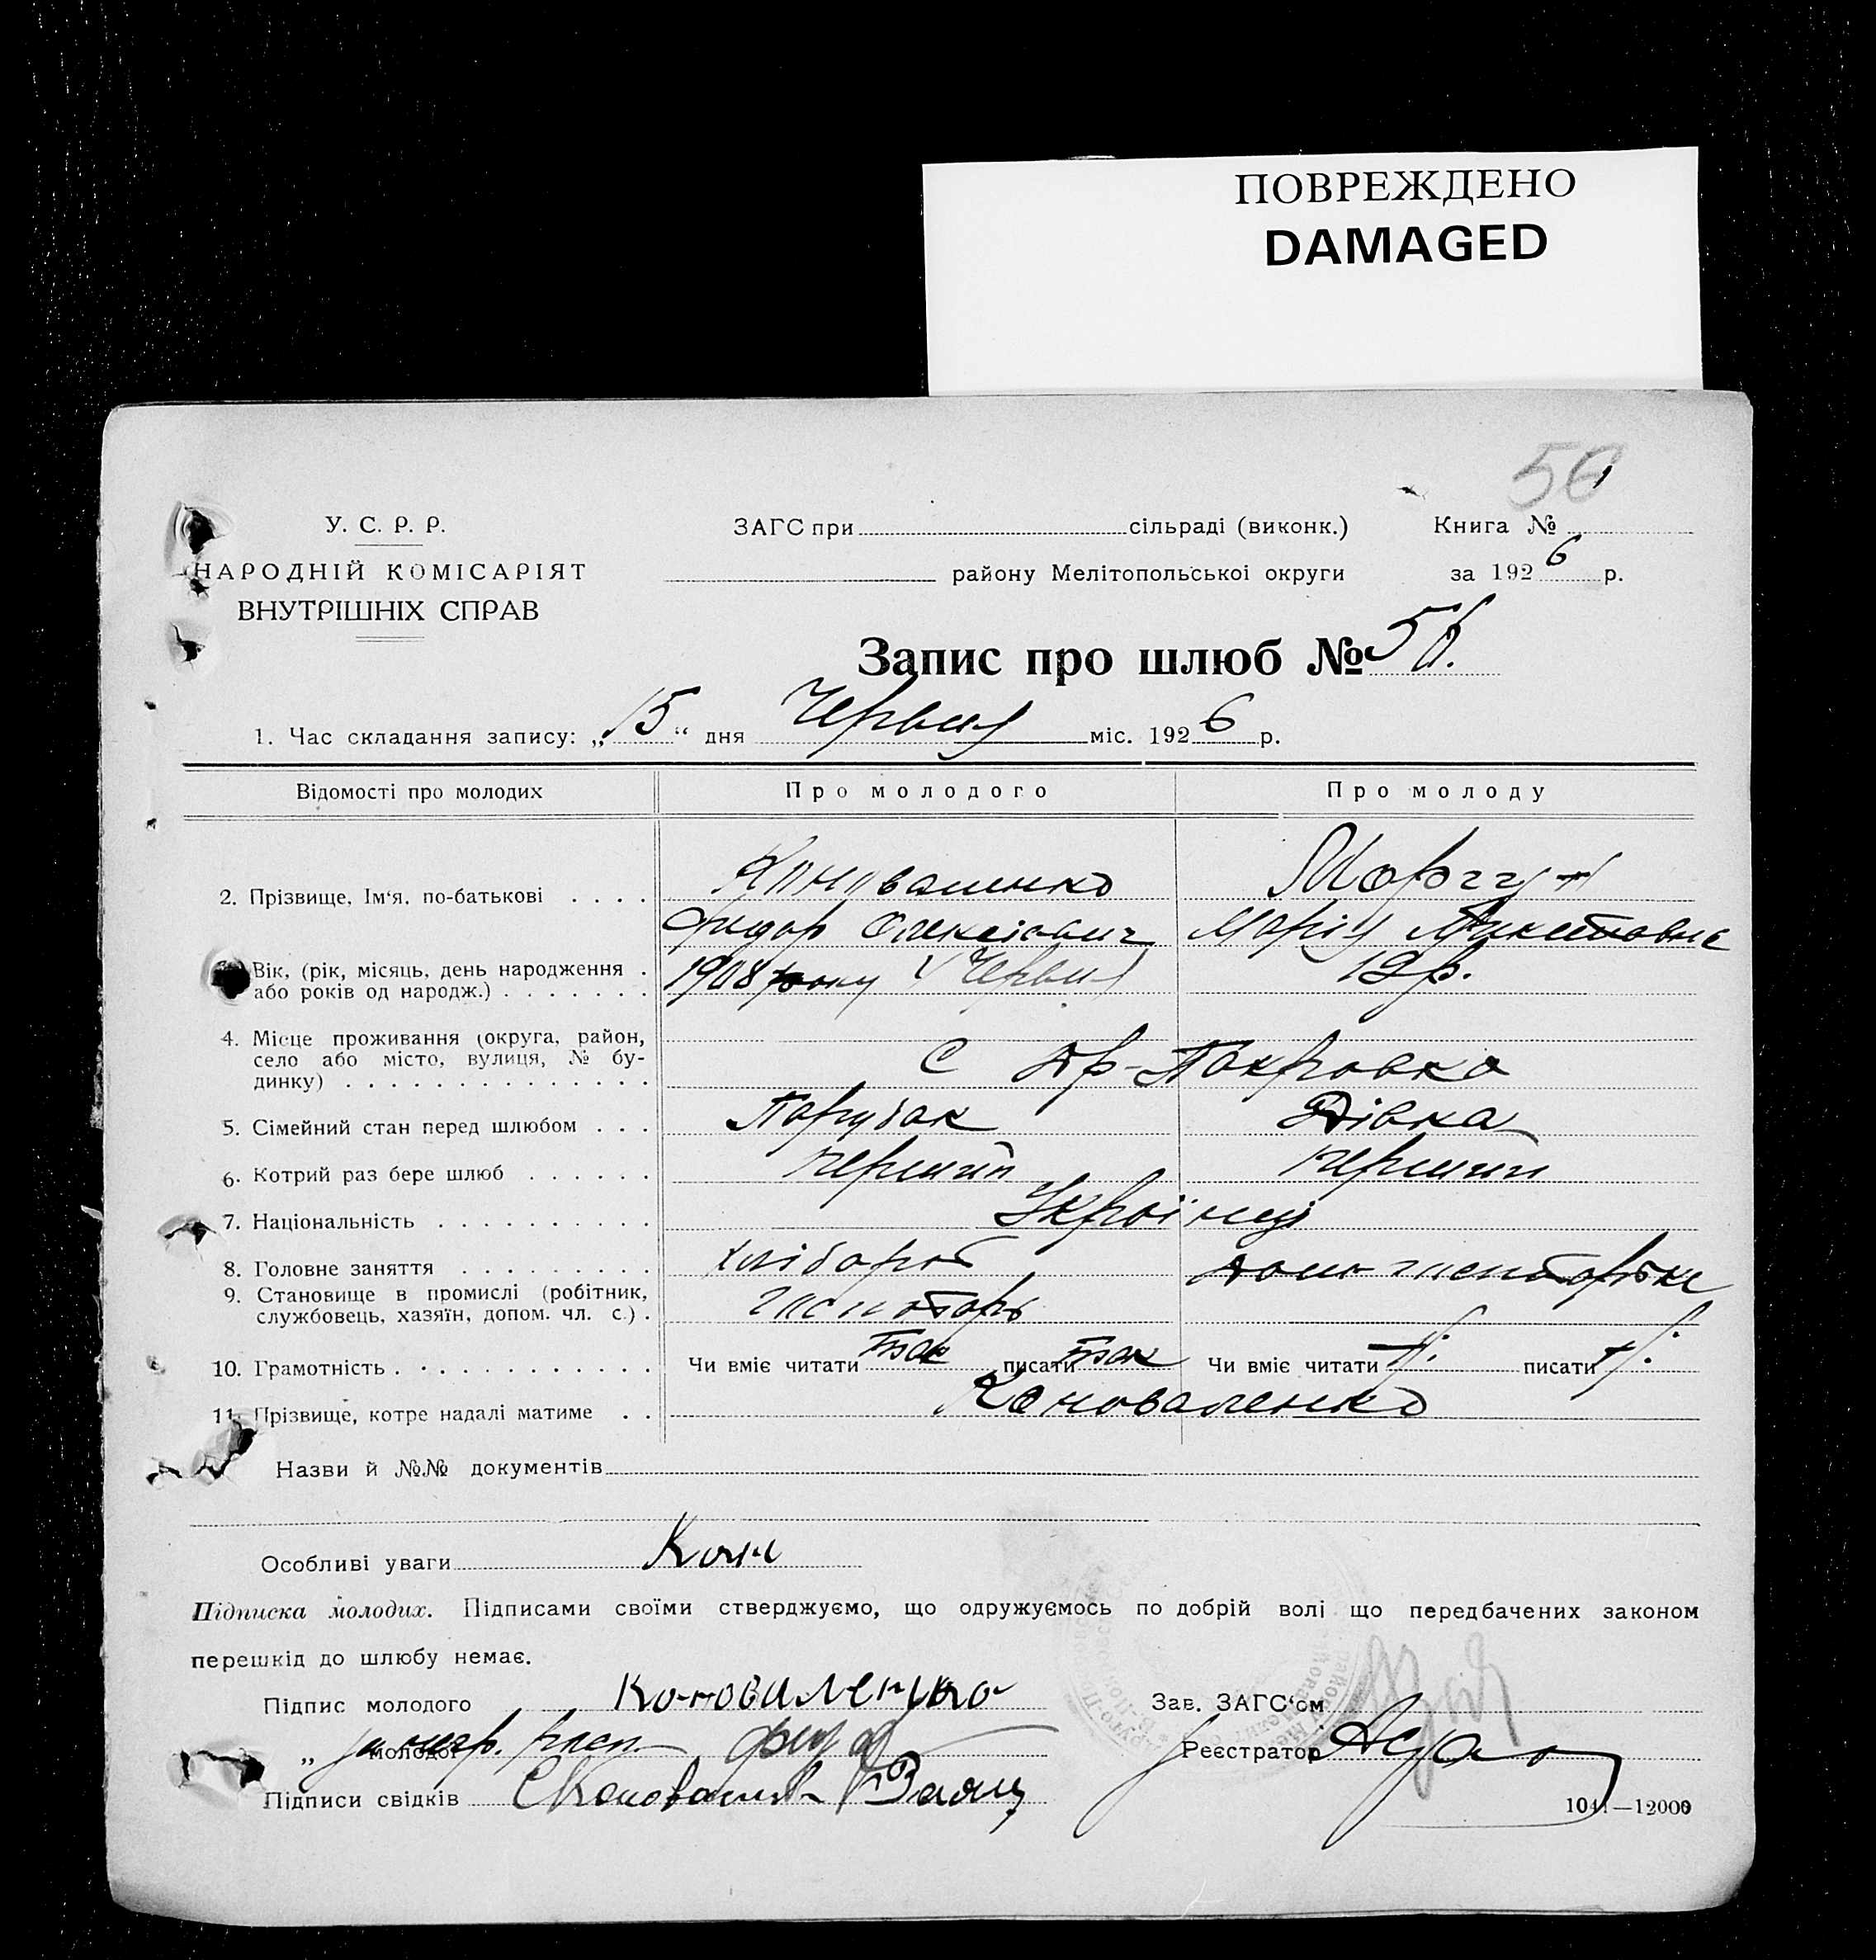 ПОВРЕЖДЕНО
DAMAGED
56
У. С. Р. Р.
НАРОДНІЙ КОМІСАРІЯТ
ВНУТРІШНІХ СПРАВ
ЗАГС при сільраді (виконк.)
району Мелітопольської округи
Книга №
за 1926 р.
Запис про шлюб № 56.
1. Час складання запису: „15“ дня Червня міс. 1926 р.
Відомості про молодих Про молодого Про молоду
2. Прізвище, Ім‘я, по-батькові . . . . Коноваленко Моргун
Фидор Олексієвич Марія Микитовна
Вік, (рік, місяць, день народження . 1908 року Червня 19 р.
або років од народж.) . . . . . . .
4. Місце проживання (округа, район,
село або місто, вулиця, № бу-
динку) . . . . . . . . . . . . . . С Др-Покровка
5. Сімейний стан перед шлюбом . . . Парубак Дівка
6. Котрий раз бере шлюб . . . . . . перший перший
7. Національність . . . . . . . . . . Українці
8. Головне заняття . . . . . . . . . хлібороб
9. Становище в промислі (робітник,
службовець, хазяїн, допом. чл. с.) . господарь
10. Грамотність . . . . . . . . . . . Чи вміє читати так писати так Чи вміє читати писати
11. Прізвище, котре надалі матиме . . Коноваленко
Назви й №№ документів
Особливі уваги
Підписка молодих. Підписами своїми стверджуємо, що одружуємось по добрій волі що передбачених законом
перешкід до шлюбу немає.
Підпис молодого Коноваленко
„ молодої
Підписи свідків
Зав. ЗАГС‘ом
Реєстратор
1041—12000